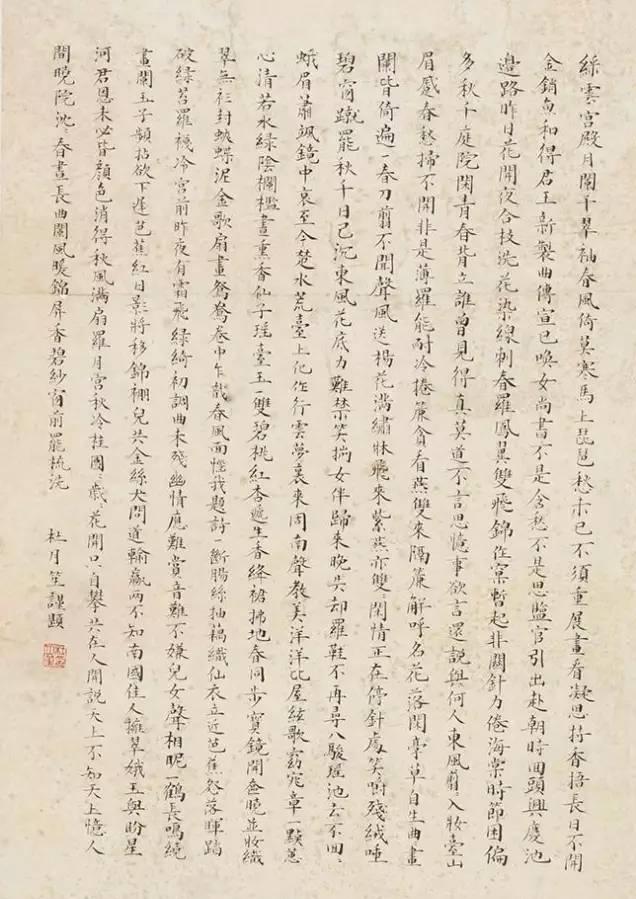 綵雲宮殿月闌干翠袖春風倚莫寒馬上琵琶愁未已不須重展畫看凝思持香捂長日不開
金銷魚和得君王新製曲傳宣已喚女尚書不是含愁不是思監官引出赴朝時回頭興慶池
邊路昨日花開夜合枝洗花染線刺春羅鳳翼雙飛錦作窠暫起非關針力倦海棠時節困偏
多秋千庭院閑青春背立誰曾見得真莫道不言思憶事欲言還說與何人東風剪入妝臺山
眉蹙春愁掃不開非是薄羅能耐冷捲簾貪看燕雙來隔簾解呼名花落閑亭草自生曲畫
闌皆倚遍一春刀剪不開聲風送楊花滿繡牀飛來紫燕亦雙閑情正在停針處笑嚼殘絨唾
碧窗蹴罷秋千日已沉東風花底力難禁笑揣女伴歸來晚失却羅鞋不再尋八駿瑤池去不回
蛾眉蕭颯鏡中哀至今楚水荒臺上化作行雲夢裏來周南聲教美洋洋比屋絃歌窈窕章一點蕙
心清若水綠陰欄檻晝熏香仙子瑤臺玉一雙碧桃紅杏遞生香絳裙拂地春同步寶鏡開奩曉並妝織
翠無衫封蛺蝶泥金歌扇畫鴛鴦卷中乍識春風面惱我題詩一斷腸絲抽藕織仙衣立近芭蕉怨落暉踏
破綠苔羅襪冷宮前昨夜有霜飛綠綺初調曲未殘幽情應難賞音難不嫌兒女聲相昵一鶴長鳴繞
畫闌玉子頻拈欲下遲芭蕉紅日影將移錦棚兒共金絲犬問道輸贏兩不知南國佳人擁翠娥玉與盼星
河君恩未必皆顏色消得秋風滿扇羅月宮秋冷桂團歲花開只自攀共在人間說天上不知天上憶人
間曉院沈春晝長曲闌風暖錦屏香碧紗窗前罷梳洗
杜月笙謹題